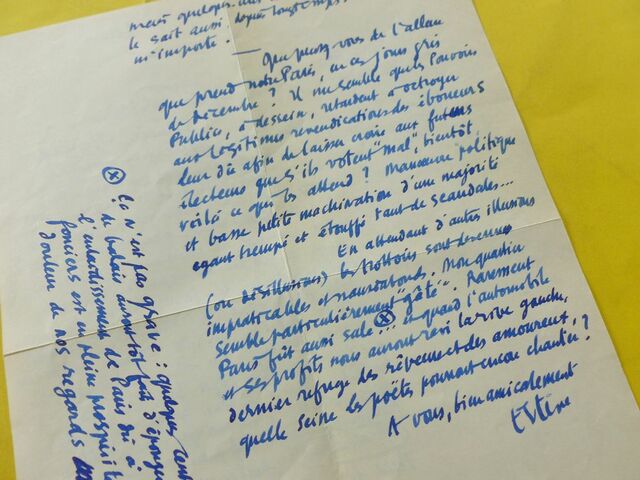 merci quelques
le sait aussi, depuis longtemps,
m'importe. —
Que pensez-vous de l'allure
que prend notre Paris, en ces jours gris
de décembre ? Il me semble que les Pouvoirs
Publics, à dessein, retardent d'octroyer
aux légitimes revendications des éboueurs
leur dû afin de laisser croire aux futurs
électeurs que s'ils votent "mal", bientôt
voilà ce qui les attend ? Manœuvre politique
et basse petite machination d'une majorité
ayant trempé et étouffé tant de scandales...
En attendant d'autres illusions
(ou désillusions) les trottoirs sont devenus
impraticables et nauséabonds. Mon quartier
semble particulièrement "gâté". Rarement
Paris fût aussi sale ⊗... et quand l'automobile
et ses profits nous auront ravi la rive gauche,
dernier refuge des rêveurs et des amoureux,
quelle Seine les poëtes pourront encore chanter ?
A vous, bien amicalement
⊗ Ce n'est pas grave : quelques
de balais auront tôt fait d'éponger
l'enlaidissement de Paris dû à
fonciers est en pleine
douleur de nos regards